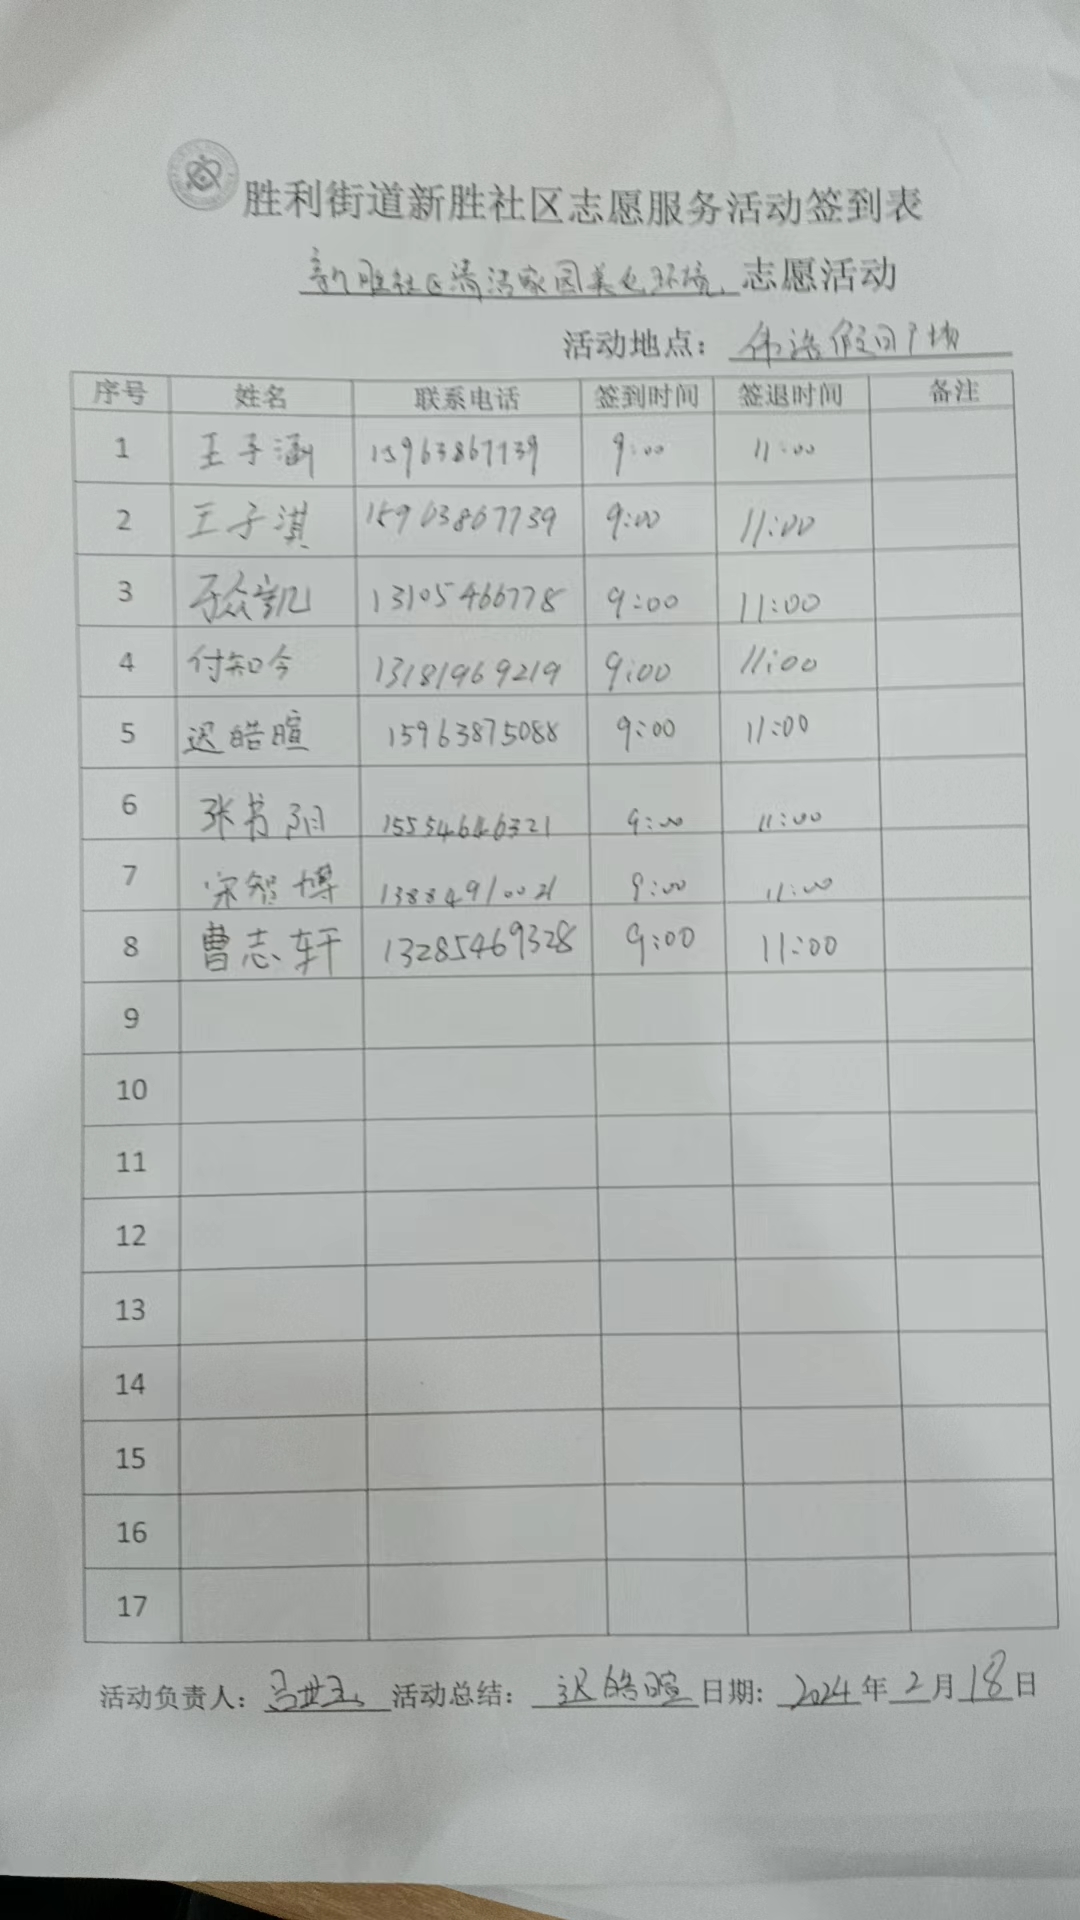 胜利街道新胜社区志愿服务活动签到表
新胜社区清洁家园美化环境 志愿活动
活动地点： 伟浩假日广场
序号 姓名 联系电话 签到时间 签退时间 备注
1 王子涵 15963867739 9:00 11:00
2 王子淇 15963867739 9:00 11:00
3 13105466778 9:00 11:00
4 付知今 13181969219 9:00 11:00
5 迟皓暄 15963875088 9:00 11:00
6 张书阳 15554646321 9:00 11:00
7 宋智博 13884910021 9:00 11:00
8 曹志轩 13285469328 9:00 11:00
9
10
11
12
13
14
15
16
17
活动负责人： 活动总结： 迟皓暄 日期: 2024 年 2 月 18 日